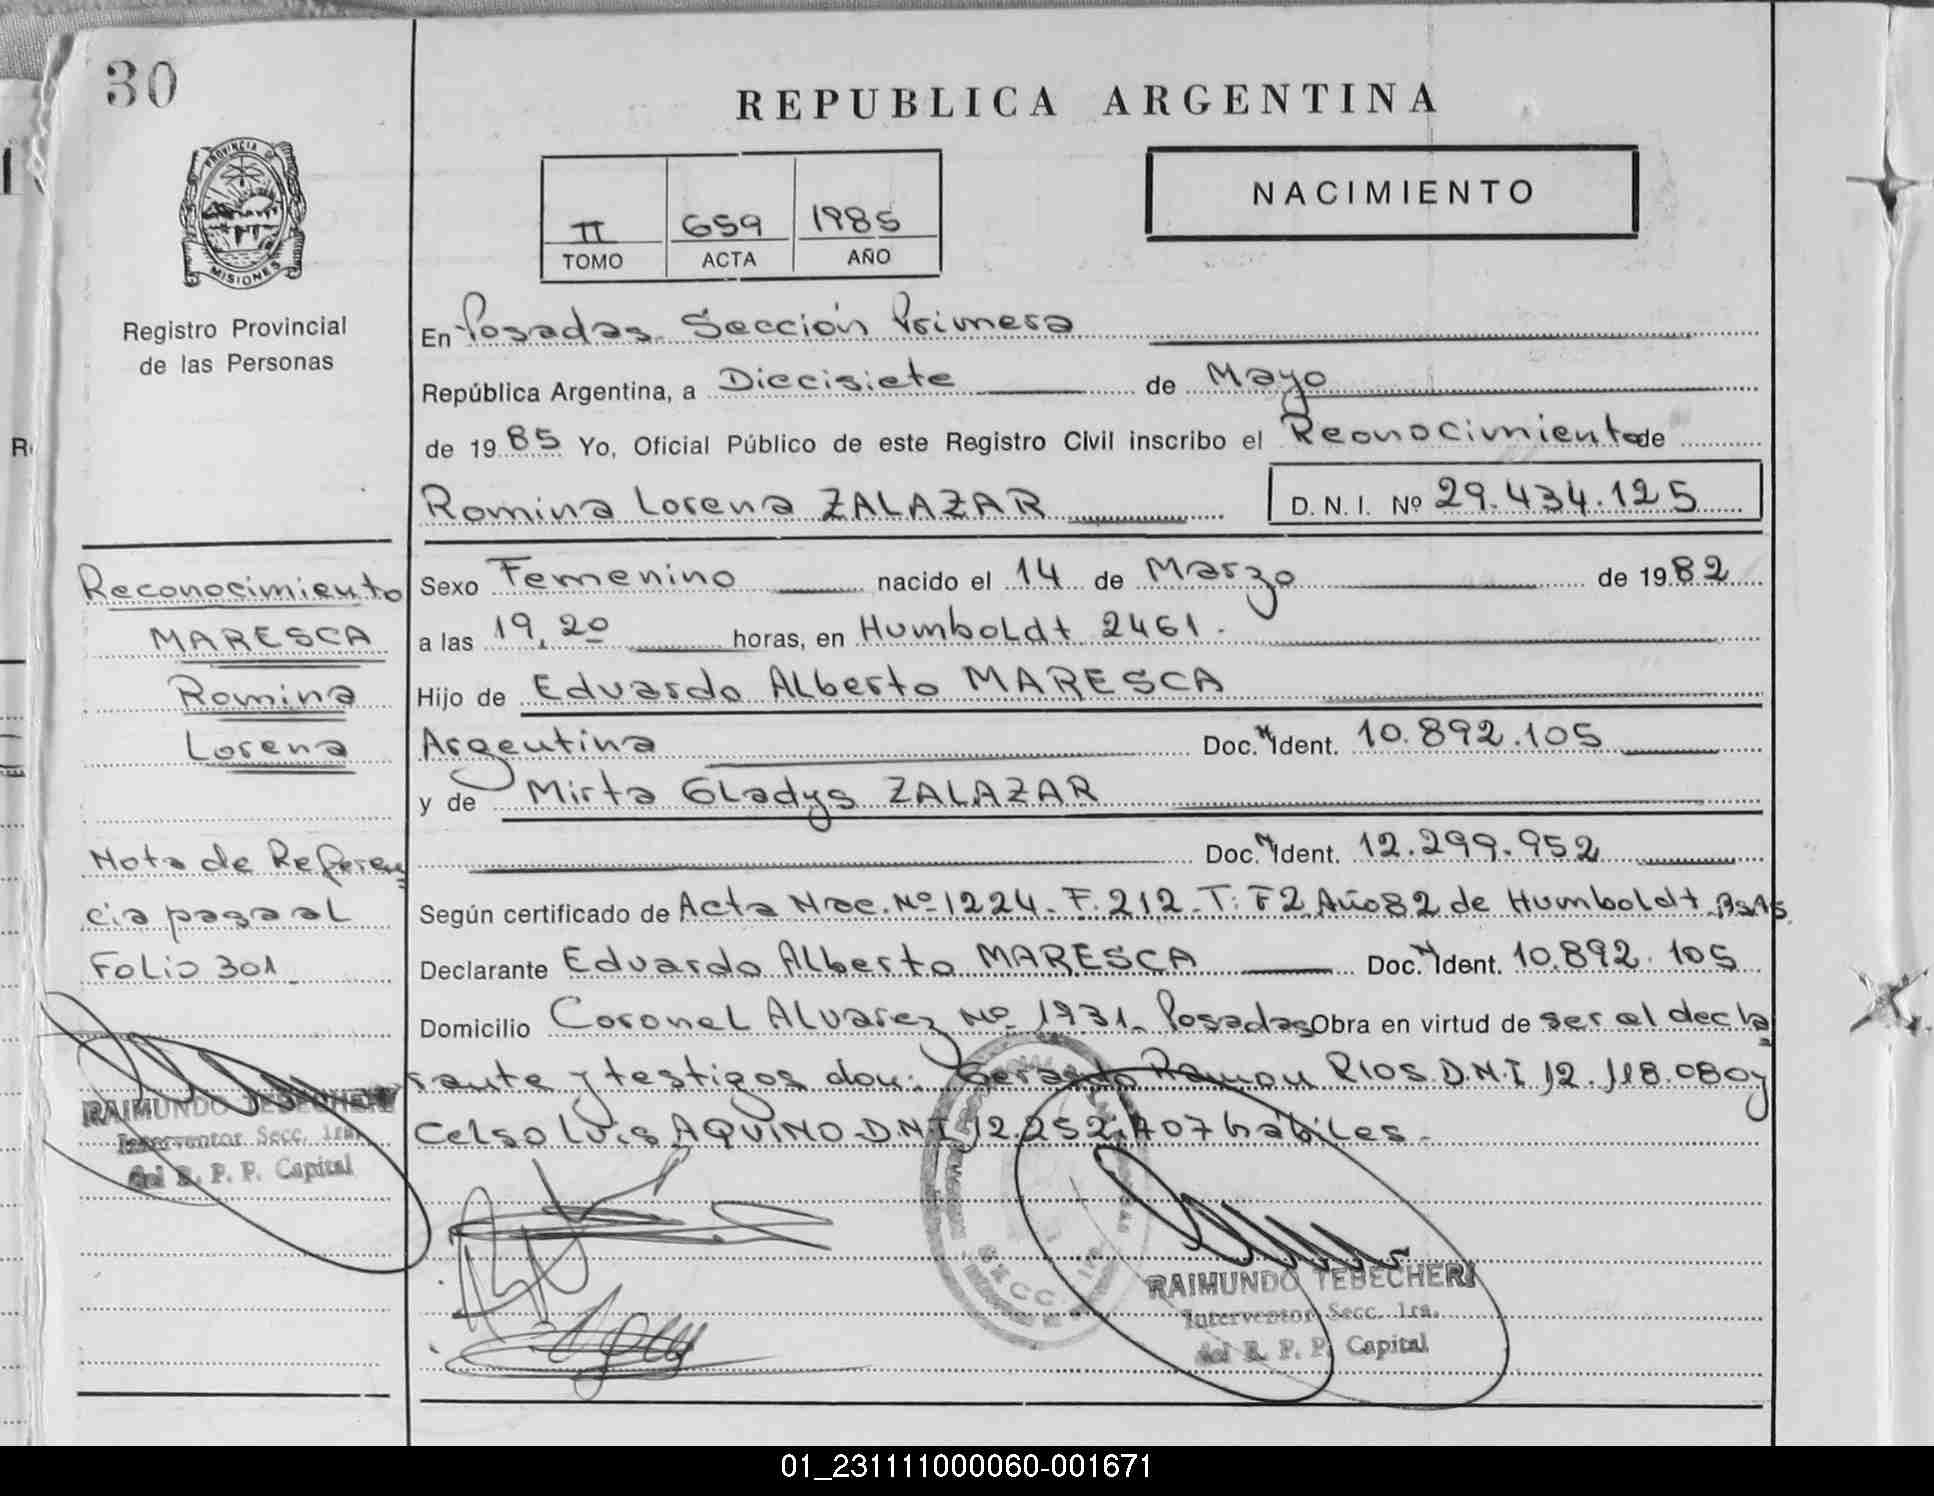 30
REPUBLICA ARGENTINA
PROVINCIA DE
MISIONES
Registro Provincial
de las Personas
II 659 1985
TOMO ACTA AÑO
NACIMIENTO
En Posadas Sección Primera
República Argentina, a Diecisiete de Mayo
de 1985 Yo, Oficial Público de este Registro Civil inscribo el Reonocimiento de
Romina Lorena ZALAZAR D.N.I. Nº 29.434.125
Sexo Femenino nacido el 14 de Marzo de 1982
a las 19,20 horas, en Humboldt 2461.
Hijo de Eduardo Alberto MARESCA
Argentina Doc. Ident. 10.892.105
y de Mirta Gladys ZALAZAR
Doc. Ident. 12.299.952
Según certificado de Acta Nac. Nº 1224. F. 212. T: F2 Año 82 de Humboldt. BsAs
Declarante Eduardo Alberto MARESCA Doc. Ident. 10.892.105
Domicilio Coronel Alvarez Nº 1931. Posadas Obra en virtud de ser el decla
rante y testigos don: Gerardo Ramon RIOS. D.N.I 12.118.080 y
Celso Luis AQUINO. D.N.I 12.252.407 hábiles.
Reconocimiento
MARESCA
Romina
Lorena
Nota de Referen
cia pasa al
Folio 301
RAIMUNDO TEBECHERI
Interventor Secc. 1ra.
del R. P. P. Capital
SECC. 1ra
RAIMUNDO TEBECHERI
Interventor Secc. 1ra.
del R. P. P. Capital
01_231111000060-001671